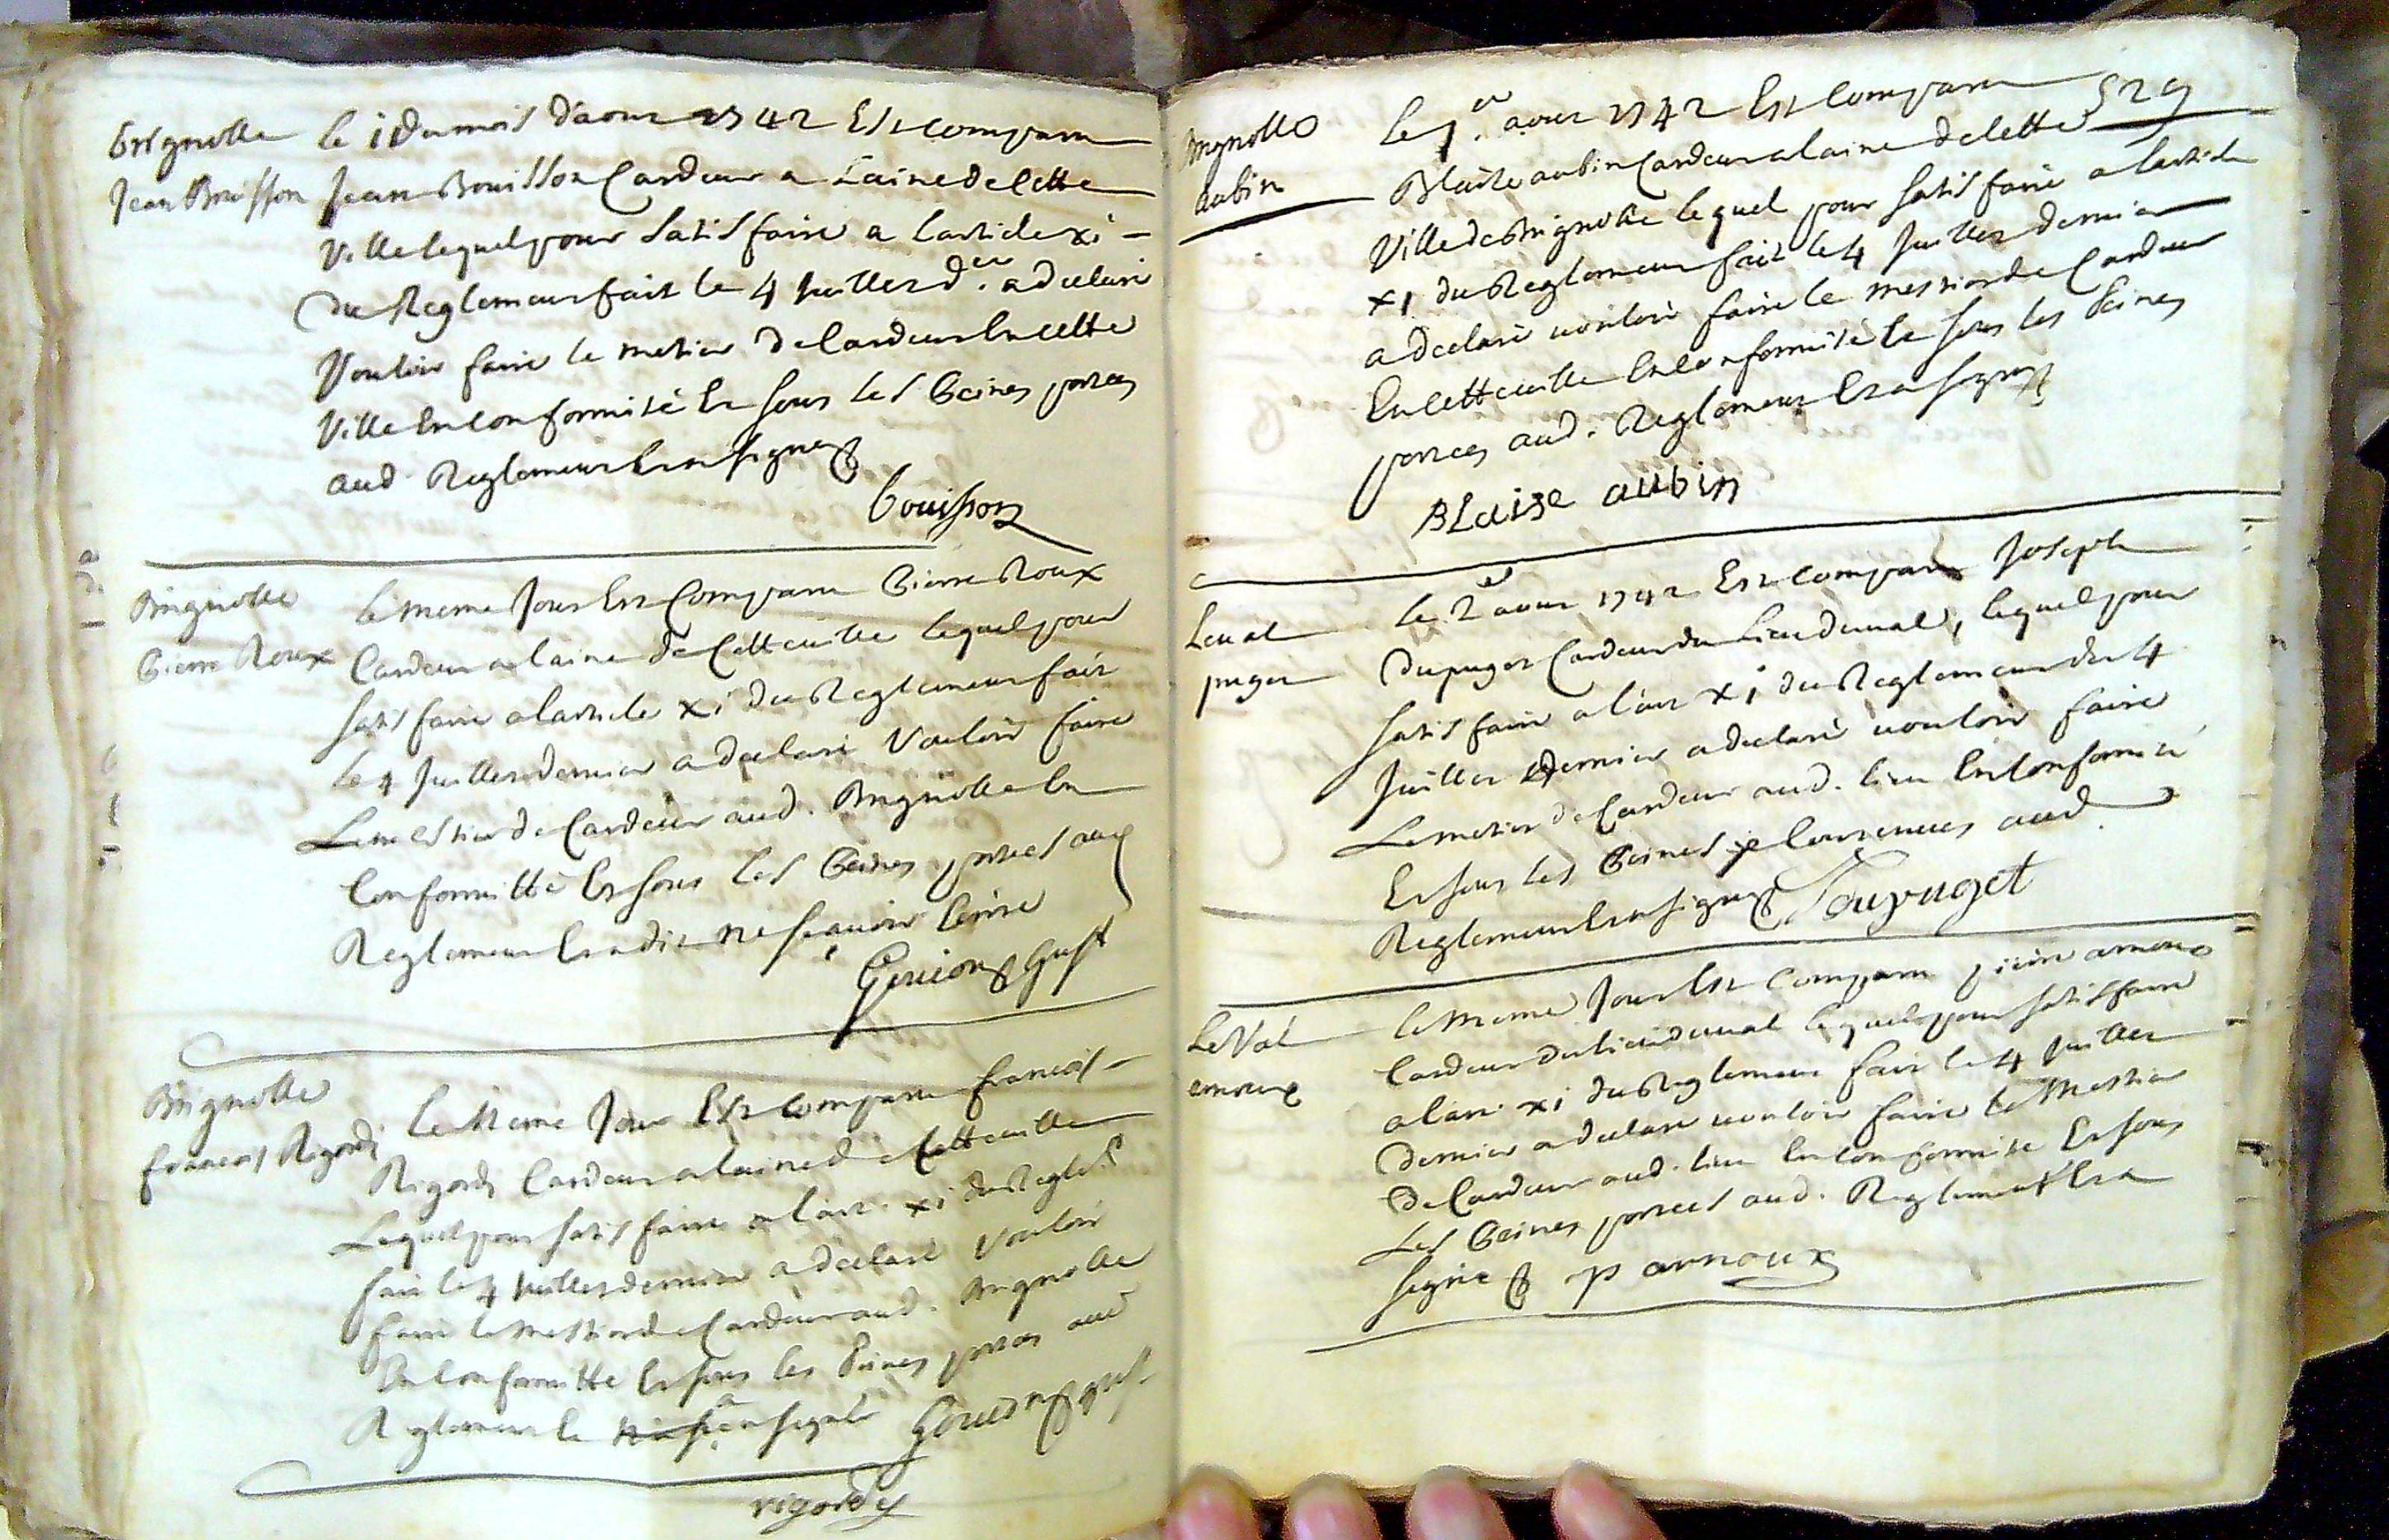 Brignolle
Jean Bouisson
le i du mois d'aout 1742 Est comparu
Jean Bouisson Cardeur a Laine de cette
Ville lequel pour satisfaire a l'article xi
Du Reglement fait le 4 Juillet d.er a declaré
Vouloir faire le metier de Cardeur En cette
Ville En conformité Et sous les Peines portées
aud. Reglement Et a signé
bouisson
Brignolle
Pierre Roux
le meme Jour Est Comparu Pierre Roux
Cardeur a laine de Cette ville lequel pour
satisfaire a l'article xi du Reglement fait
le 4 Juillet dernier a declaré Vouloir faire
Le mestier de Cardeur aud. Brignolle En
Conformitté Et sous les Peines portées aud
Reglement Et a dit ne sçavoir Ecrire
Brignolle
francois Rigordy
Le Meme Jour Est comparu francois
Rigordy Cardeur a laine de Cette ville
Lequel pour satisfaire a l'art. xi du Regle.t
fait le 4 Juillet dernier a declaré Vouloir
faire le mestier de Cardeur aud. Brignolle
En Conformitté Et sous les Peines portées aud
Reglement Et a signé
rigordy
529
Brignolle
aubin
Le 1.er aout 1742 Est Comparu
Blaise aubin Cardeur a laine de cette
Ville de Brignolle lequel pour satisfaire a l'article
xi du Reglement fait le 4 Juillet dernier
a declaré vouloir faire le mestier de Cardeur
En cette ville En conformité Et sous les Peines
portées aud. Reglement Et a signé
BLaise aubin
Le val
puget
le 2 aout 1742 Est comparu Joseph
Dupuget Cardeur du Lieu du val, lequel pour
satisfaire a l'art xi du Reglement du 4
Juillet dernier a declaré vouloir faire
Le metier de Cardeur aud. lieu En Conformité
Et sous les Peines contenues aud.
Reglement Et a signé Dupuget
Le Val
arnoux
le meme Jour Est Comparu arnoux
Cardeur du lieu du val lequel pour satisfaire
a l'art xi du Reglement fait le 4 Juillet
dernier a declaré vouloir faire le Mestier
de Cardeur aud. lieu En conformité Et sous
Les Peines portées aud. Reglement Et a
signé P arnoux